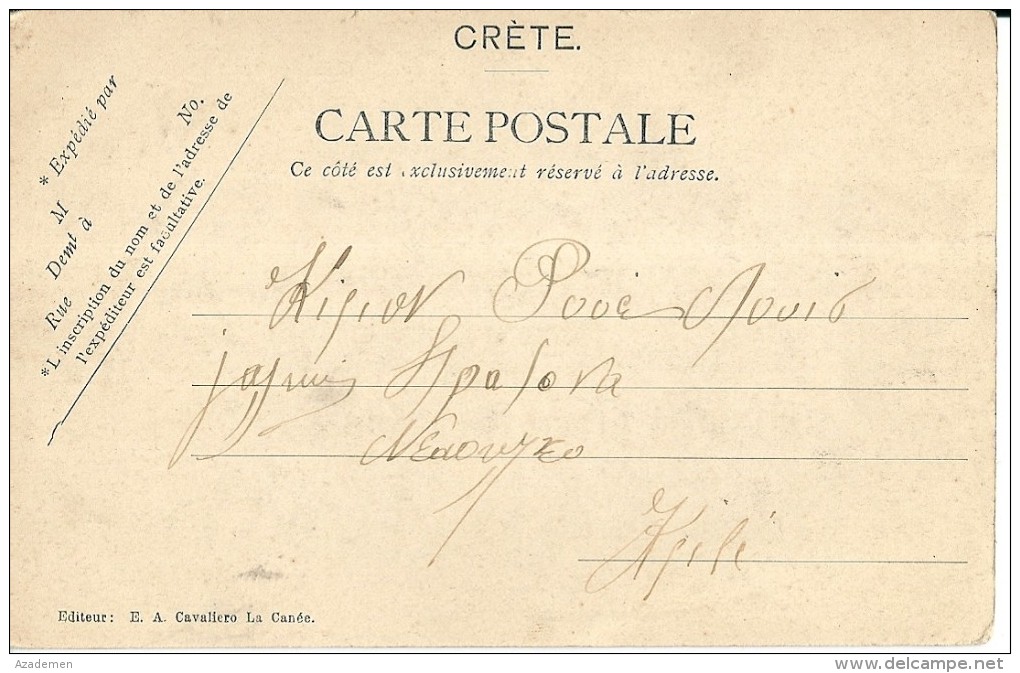 CRÈTE.
CARTE POSTALE
Ce côté est exclusivement réservé à l'adresse.
* Expédié par
M
Demt à
Rue No.
*L'inscription du nom et de l'adresse de
l'expéditeur est facultative.
Κύριον
Editeur: E. A. Cavaliero La Canée.
Azademen
www.delcampe.net